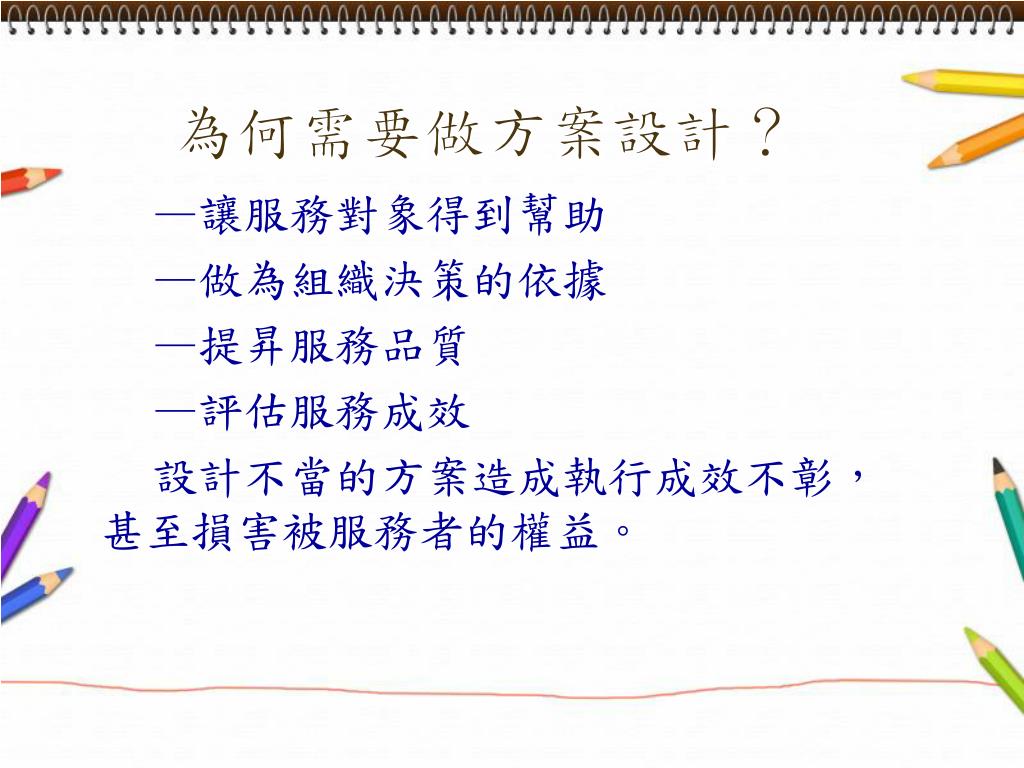 為何需要做方案設計？
—讓服務對象得到幫助
—做為組織決策的依據
—提昇服務品質
—評估服務成效
設計不當的方案造成執行成效不彰，
甚至損害被服務者的權益。